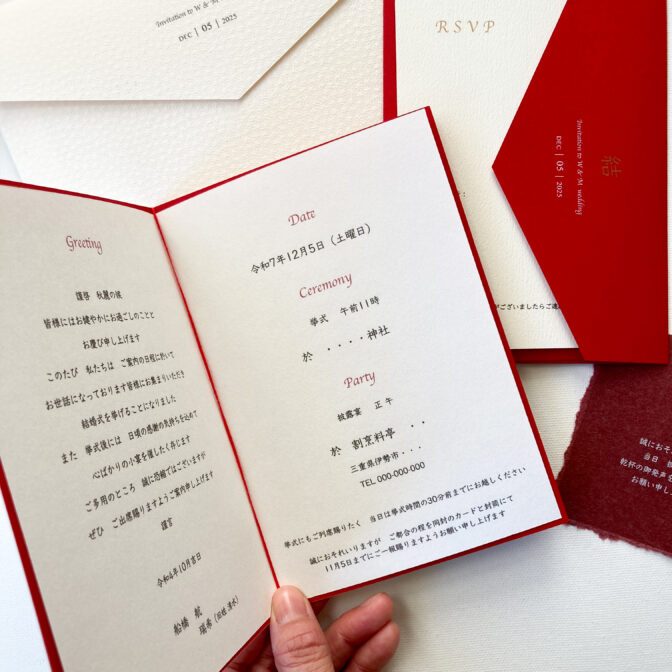 Invitation to W & M wedding
DEC | 05 | 2025
RSVP
Invitation to W & M wedding
DEC | 05 | 2025
結
Greeting
謹啓 秋麗の候
皆様にはお健やかにお過ごしのことと
お慶び申し上げます
このたび 私たちは ご案内の日程に於いて
お世話になっております皆様にお集まりいただき
結婚式を挙げることになりました
また 挙式後には 日頃の感謝の気持ちを込めて
心ばかりの小宴を催したく存じます
ご多用のところ 誠に恐縮ではございますが
ぜひ ご出席賜りますようご案内申し上げます
謹言
令和4年10月吉日
船橋 航
瑞希(旧姓 清水)
Date
令和7年12月5日(土曜日)
Ceremony
挙式 午前11時
於 ・・・・神社
Party
披露宴 正午
於 割烹料亭 ・・
三重県伊勢市・・・
TEL 000-000-000
挙式にもご列席賜りたく 当日は挙式時間の30分前までにお越しください
誠におそれいりますが ご都合の程を同封のカードと封筒にて
11月5日までにご一報賜りますようお願い申し上げます
がございましたらご連
誠におそ
当日
乾杯の御発声を
お願い申し